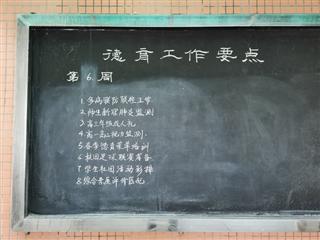 德育工作要点
第6周
1.多病共防联控工作
2.师生新冠肺炎监测
3.高三年级成人礼
4.高一高二视力监测.
5.春季德育菜单培训
6.校园足球联赛筹备
7.学生社团活动彩排
8.综合素质评价